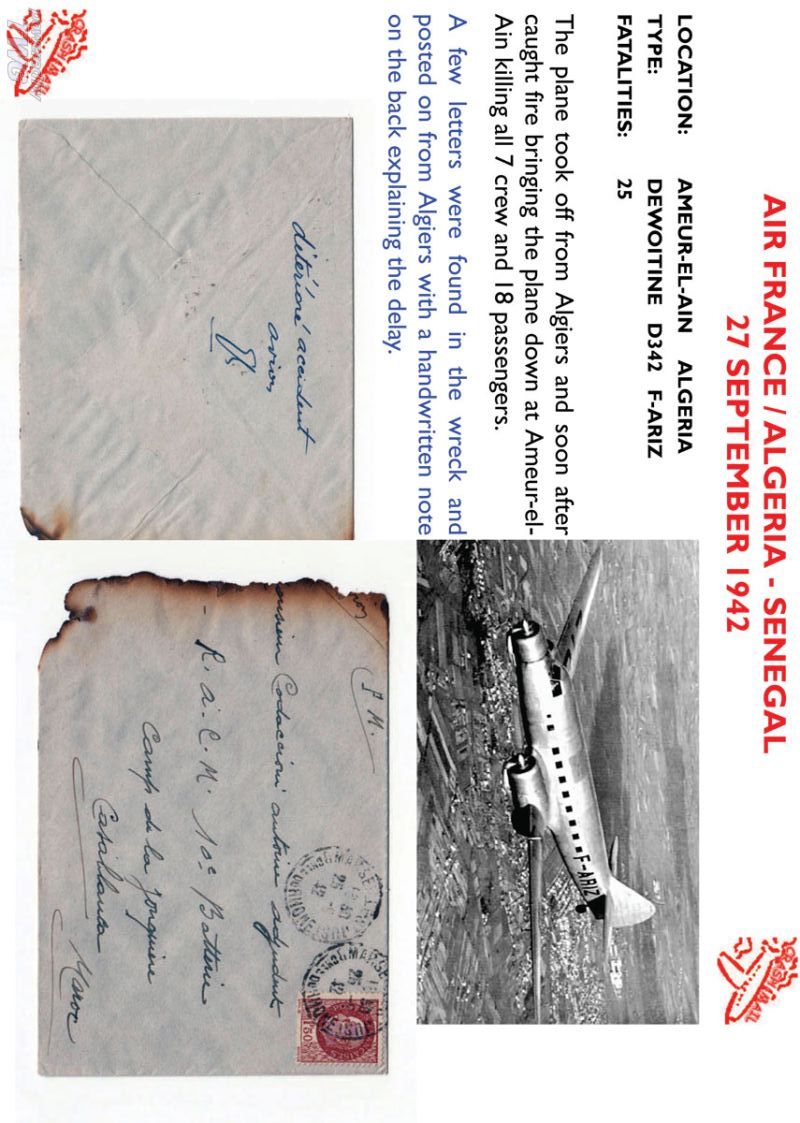 AIR FRANCE / ALGERIA - SENEGAL
27 SEPTEMBER 1942
LOCATION: AMEUR-EL-AIN ALGERIA
TYPE: DEWOITINE D342 F-ARIZ
FATALITIES: 25
The plane took off from Algiers and soon after
caught fire bringing the plane down at Ameur-el-
Ain killing all 7 crew and 18 passengers.
A few letters were found in the wreck and
posted on from Algiers with a handwritten note
on the back explaining the delay.
F-ARIZ
détérioré accident
avion
F. M.
Codaccioni antoine adjudant
R. a. C. M. 10e Batterie
Camp de la Jonquière
Casablanca
Maroc
1F50
CRASH MAIL
CRASH MAIL